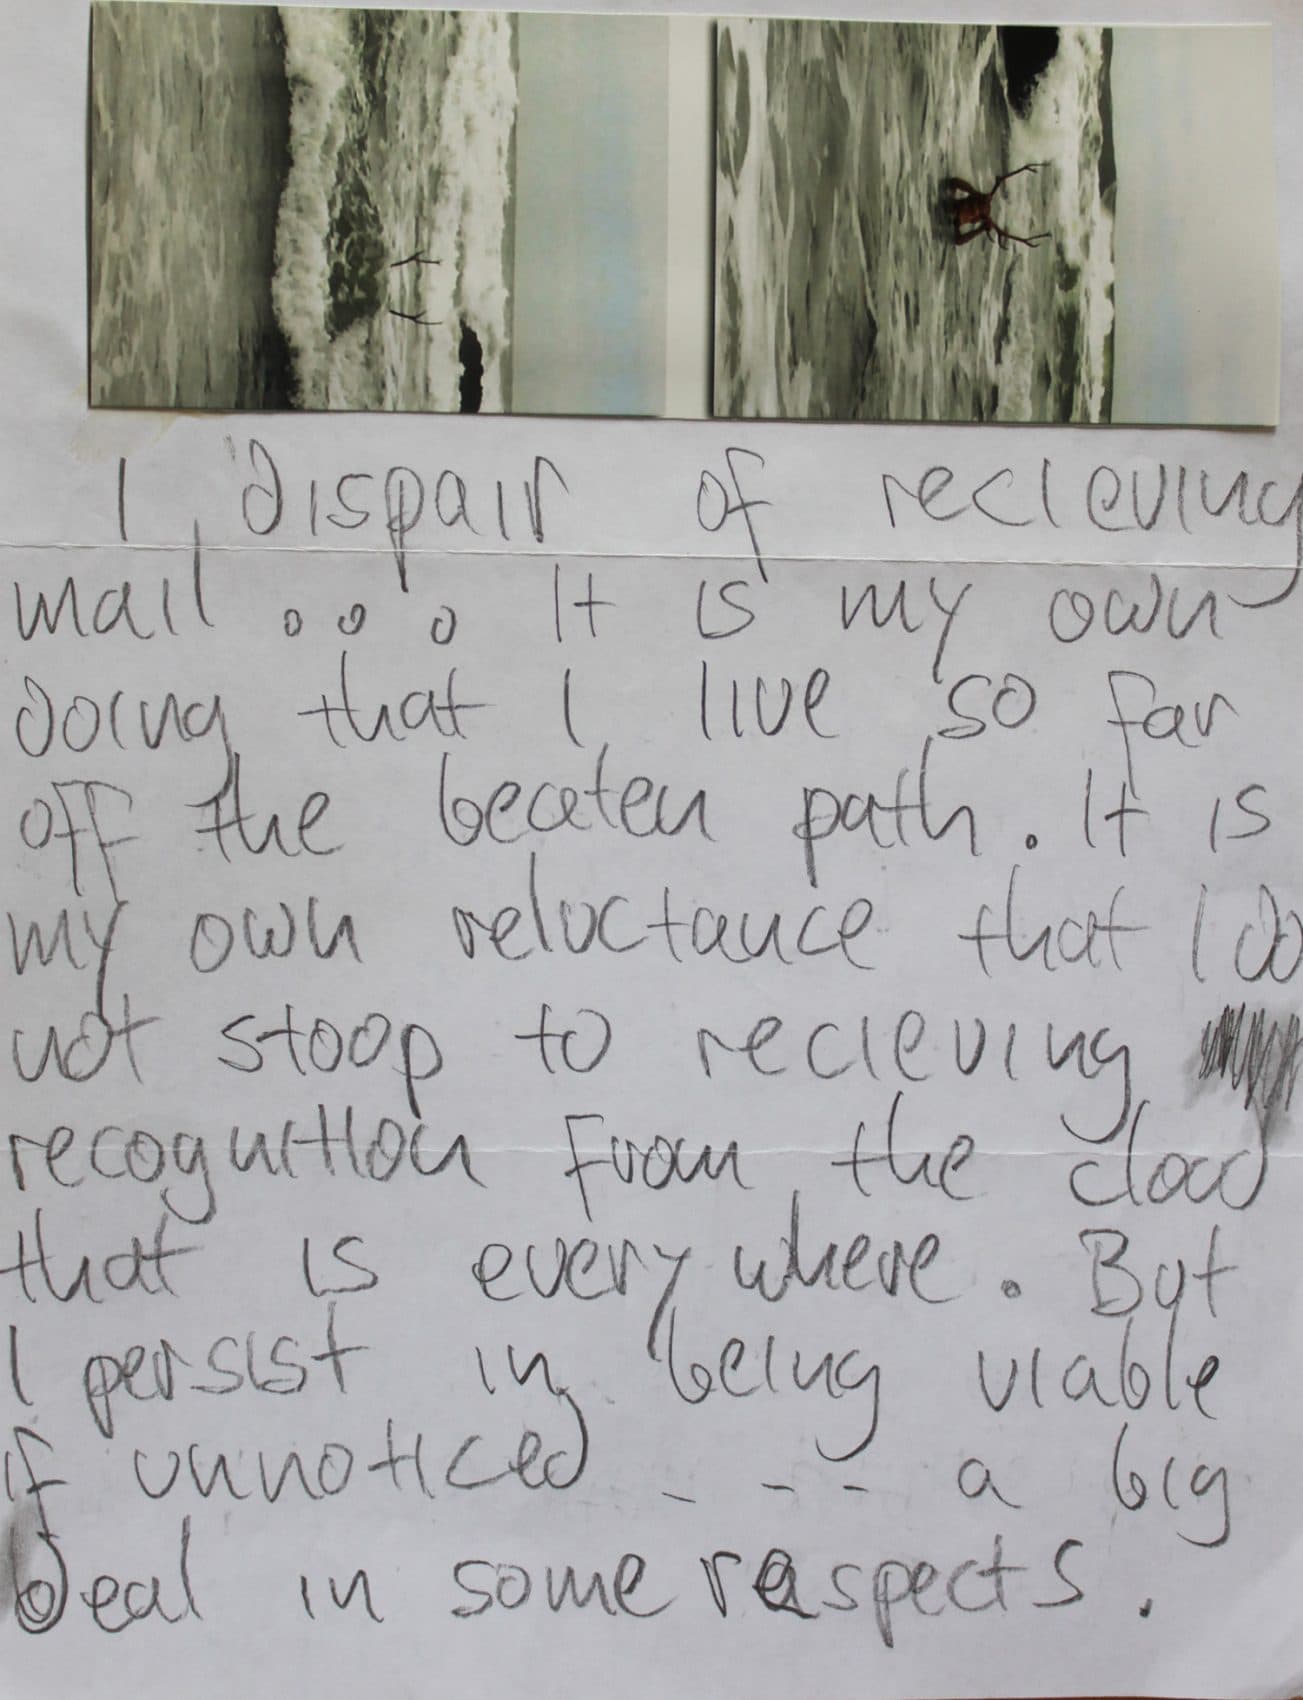 I dispair of recieving
mail . . . It is my own
doing that I live so far
off the beaten path. It is
my own reluctance that I do
not stoop to recieving
recognition from the cloud
that is everywhere. But
I persist in being viable
if unnoticed - - - a big
deal in some respects.